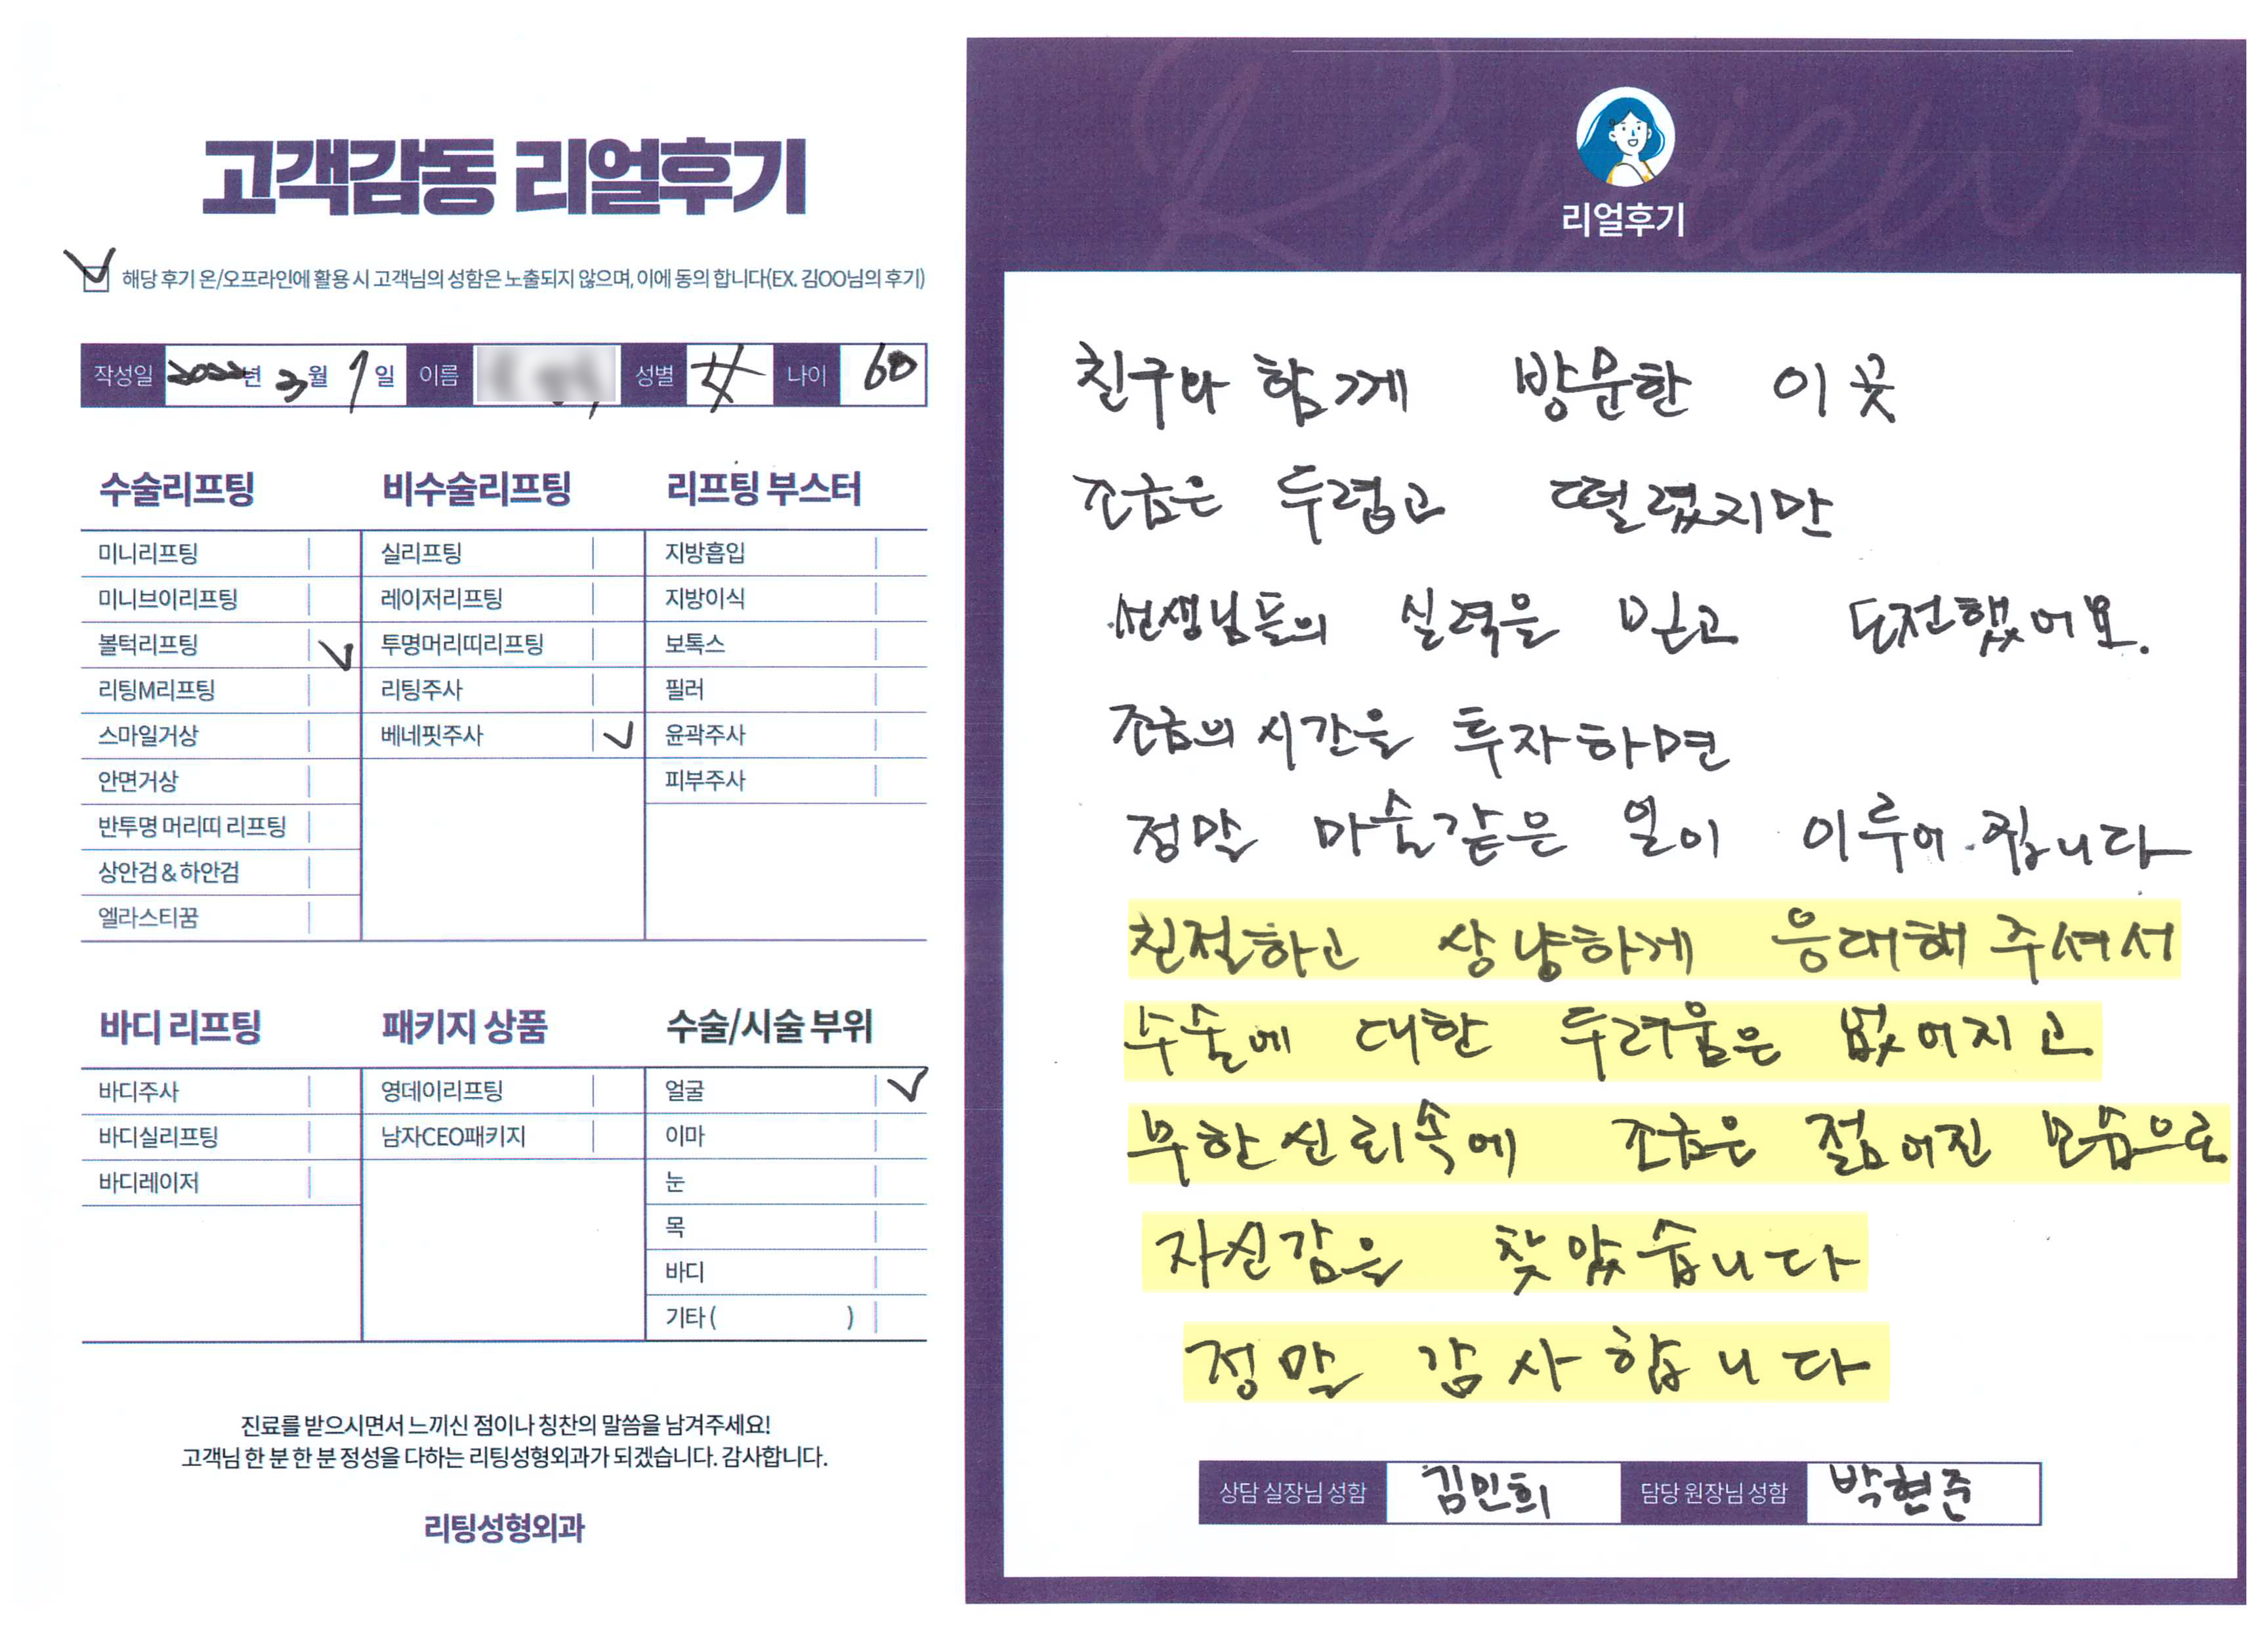 고객감동 리얼후기
해당 후기 온/오프라인에 활용 시 고객님의 성함은 노출되지 않으며, 이에 동의 합니다(EX. 김OO님의 후기)
작성일 2022년 3월 1일 이름 성별 女 나이 60
수술리프팅
미니리프팅
미니브이리프팅
볼턱리프팅
리팅M리프팅
스마일거상
안면거상
반투명 머리띠 리프팅
상안검 & 하안검
엘라스티꿈
비수술리프팅
실리프팅
레이저리프팅
투명머리띠리프팅
리팅주사
베네핏주사
리프팅 부스터
지방흡입
지방이식
보톡스
필러
윤곽주사
피부주사
바디 리프팅
바디주사
바디실리프팅
바디레이저
패키지 상품
영데이리프팅
남자CEO패키지
수술/시술 부위
얼굴
이마
눈
목
바디
기타 ( )
진료를 받으시면서 느끼신 점이나 칭찬의 말씀을 남겨주세요!
고객님 한 분 한 분 정성을 다하는 리팅성형외과가 되겠습니다. 감사합니다.
리팅성형외과
Review
리얼후기
친구와 함께 방문한 이 곳
조금은 두렵고 떨렸지만
선생님들의 실력을 믿고 도전했어요.
조금의 시간을 투자하면
정말 마술같은 일이 이루어 집니다
친절하고 상냥하게 응대해 주셔서
수술에 대한 두려움은 없어지고
무한신뢰속에 조금은 젊어진 모습으로
자신감을 찾았습니다
정말 감사합니다
상담 실장님 성함 김민희 담당 원장님 성함 박현준